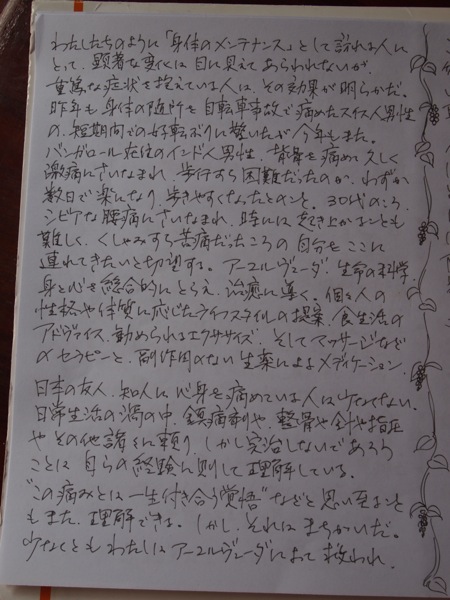 わたしたちのように「身体のメンテナンス」として訪れる人に
とって、顕著な変化は目に見えてあらわれないが、
重篤な症状を抱えている人は、その効果が明らかだ。
昨年も、身体の随所を自転車事故で痛めたスイス人男性
の、短期間での好転ぶりに驚いたが、今年もまた。
バンガロール在住のインド人男性、背骨を痛めて久しく
激痛にさいなまれ、歩行すら困難だったのが、わずか
数日で楽になり、歩きやすくなったとのこと。30代のころ、
シビアな腰痛にさいなまれ、時には起き上がることも
難しく、くしゃみすら苦痛だったころの自分を、ここに
連れてきたいと切望する。アーユルヴェーダ、生命の科学。
身と心を総合的にとらえ、治癒に導く。個々人の
性格や体質に応じたライフスタイルの提案、食生活の
アドヴァイス、勧められるエクササイズ、そしてマッサージなど
のセラピーと、副作用のない生薬によるメディケーション。
日本の友人、知人にも心身を痛めている人は少なくない。
日常生活の渦の中、鎮痛剤や、整骨や針や指圧
やその他諸々に頼り、しかし完治しないであろう
ことは、自らの経験に則して理解している。
"この痛みとは一生付き合う覚悟"などと思い至ること
もまた、理解できる。しかし、それはまちがいだ。
少なくとも、わたしはアーユルヴェーダによって救われ、